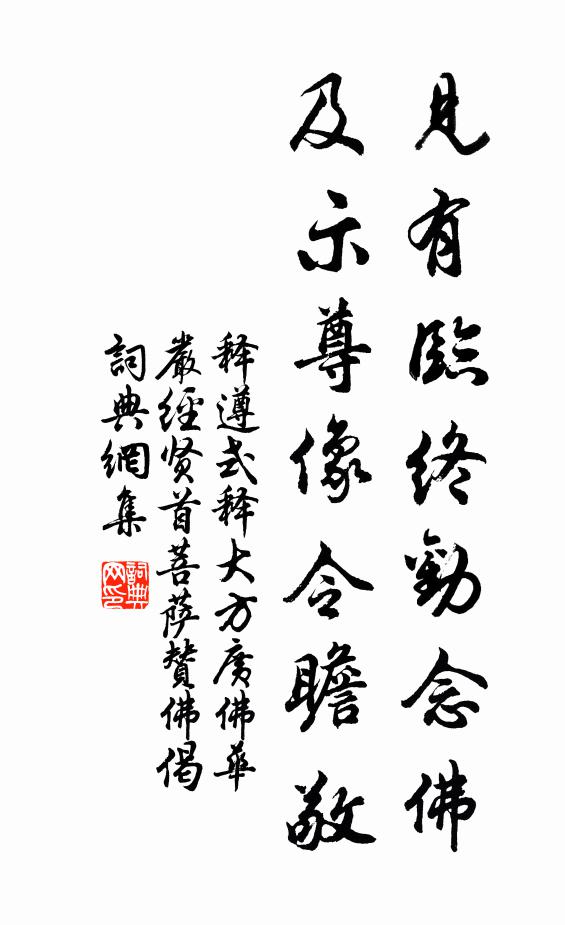 見有臨終勸念佛
及示尊像令瞻敬
释遵式释大方廣佛華
嚴經贤首菩萨贊佛偈
詞典網集
詞典网印